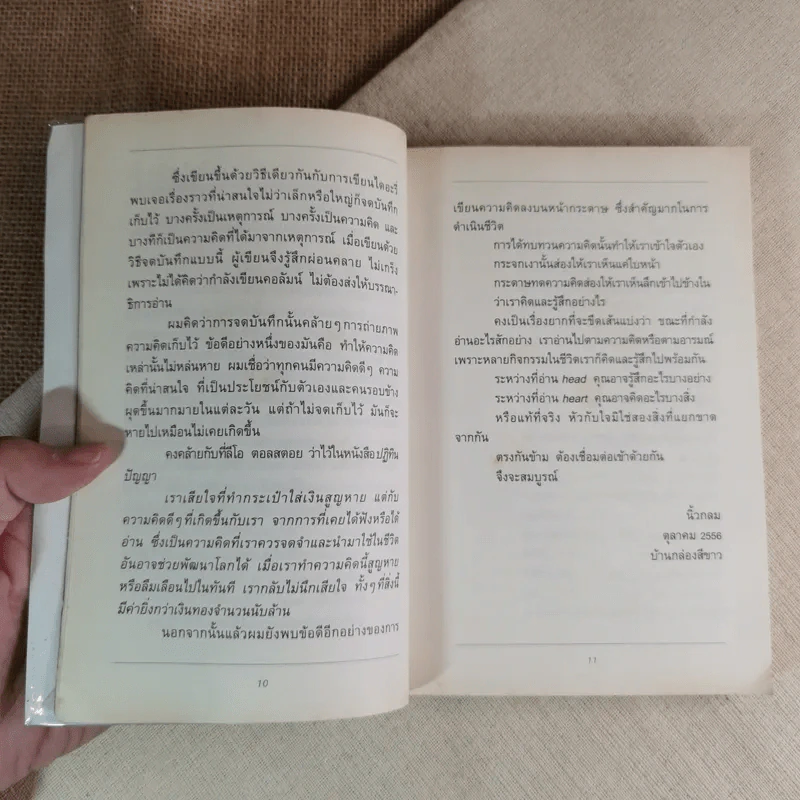 ซึ่งเขียนขึ้นด้วยวิธีเดียวกันกับการเขียนไดอะรี่
พบเจอเรื่องราวที่น่าสนใจไม่ว่าเล็กหรือใหญ่ก็จดบันทึก
เก็บไว้ บางครั้งเป็นเหตุการณ์ บางครั้งเป็นความคิด และ
บางทีก็เป็นความคิดที่ได้มาจากเหตุการณ์ เมื่อเขียนด้วย
วิธีจดบันทึกแบบนี้ ผู้เขียนจึงรู้สึกผ่อนคลาย ไม่เกร็ง
เพราะไม่ได้คิดว่ากำลังเขียนคอลัมน์ ไม่ต้องส่งให้บรรณา-
ธิการอ่าน
ผมคิดว่าการจดบันทึกนั้นคล้ายๆ การถ่ายภาพ
ความคิดเก็บไว้ ข้อดีอย่างหนึ่งของมันคือ ทำให้ความคิด
เหล่านั้นไม่หล่นหาย ผมเชื่อว่าทุกคนมีความคิดดีๆ ความ
คิดที่น่าสนใจ ที่เป็นประโยชน์กับตัวเองและคนรอบข้าง
ผุดขึ้นมากมายในแต่ละวัน แต่ถ้าไม่จดเก็บไว้ มันก็จะ
หายไปเหมือนไม่เคยเกิดขึ้น
คงคล้ายกับที่ลีโอ ตอลสตอย ว่าไว้ในหนังสือปฏิทิน
ปัญญา
เราเสียใจที่ทำกระเป๋าใส่เงินสูญหาย แต่กับ
ความคิดดีๆ ที่เกิดขึ้นกับเรา จากการที่เคยได้ฟังหรือได้
อ่าน ซึ่งเป็นความคิดที่เราควรจดจำและนำมาใช้ในชีวิต
อันอาจช่วยพัฒนาโลกได้ เมื่อเราทำความคิดนี้สูญหาย
หรือลืมเลือนไปในทันที เรากลับไม่นึกเสียใจ ทั้งๆ ที่สิ่งนี้
มีค่ายิ่งกว่าเงินทองจำนวนนับล้าน
นอกจากนั้นแล้วผมยังพบข้อดีอีกอย่างของการ
10
เขียนความคิดลงบนหน้ากระดาษ ซึ่งสำคัญมากในการ
ดำเนินชีวิต
การได้ทบทวนความคิดนั้นทำให้เราเข้าใจตัวเอง
กระจกเงานั้นส่องให้เราเห็นแค่ใบหน้า
กระดาษทดความคิดส่องให้เราเห็นลึกเข้าไปข้างใน
ว่าเราคิดและรู้สึกอย่างไร
คงเป็นเรื่องยากที่จะขีดเส้นแบ่งว่า ขณะที่กำลัง
อ่านอะไรสักอย่าง เราอ่านไปตามความคิดหรือตามอารมณ์
เพราะหลายกิจกรรมในชีวิตเราก็คิดและรู้สึกไปพร้อมกัน
ระหว่างที่อ่าน head คุณอาจรู้สึกอะไรบางอย่าง
ระหว่างที่อ่าน heart คุณอาจคิดอะไรบางสิ่ง
หรือแท้ที่จริง หัวกับใจมิใช่สองสิ่งที่แยกขาด
จากกัน
ตรงกันข้าม ต้องเชื่อมต่อเข้าด้วยกัน
จึงจะสมบูรณ์
นิ้วกลม
ตุลาคม 2556
บ้านกล่องสีขาว
11